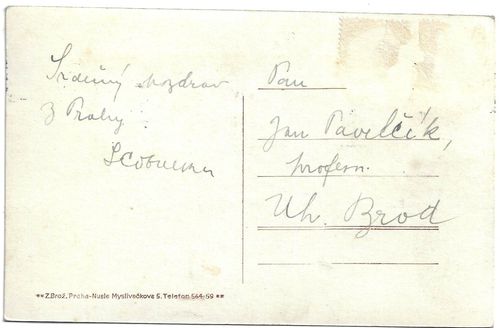 Srdečný pozdrav
z Prahy
Pan
Jan Pavelčík,
profesor.
Uh. Brod
**Z.Brož. Praha-Nusle Myslivečkova 5. Telefon 564-59**